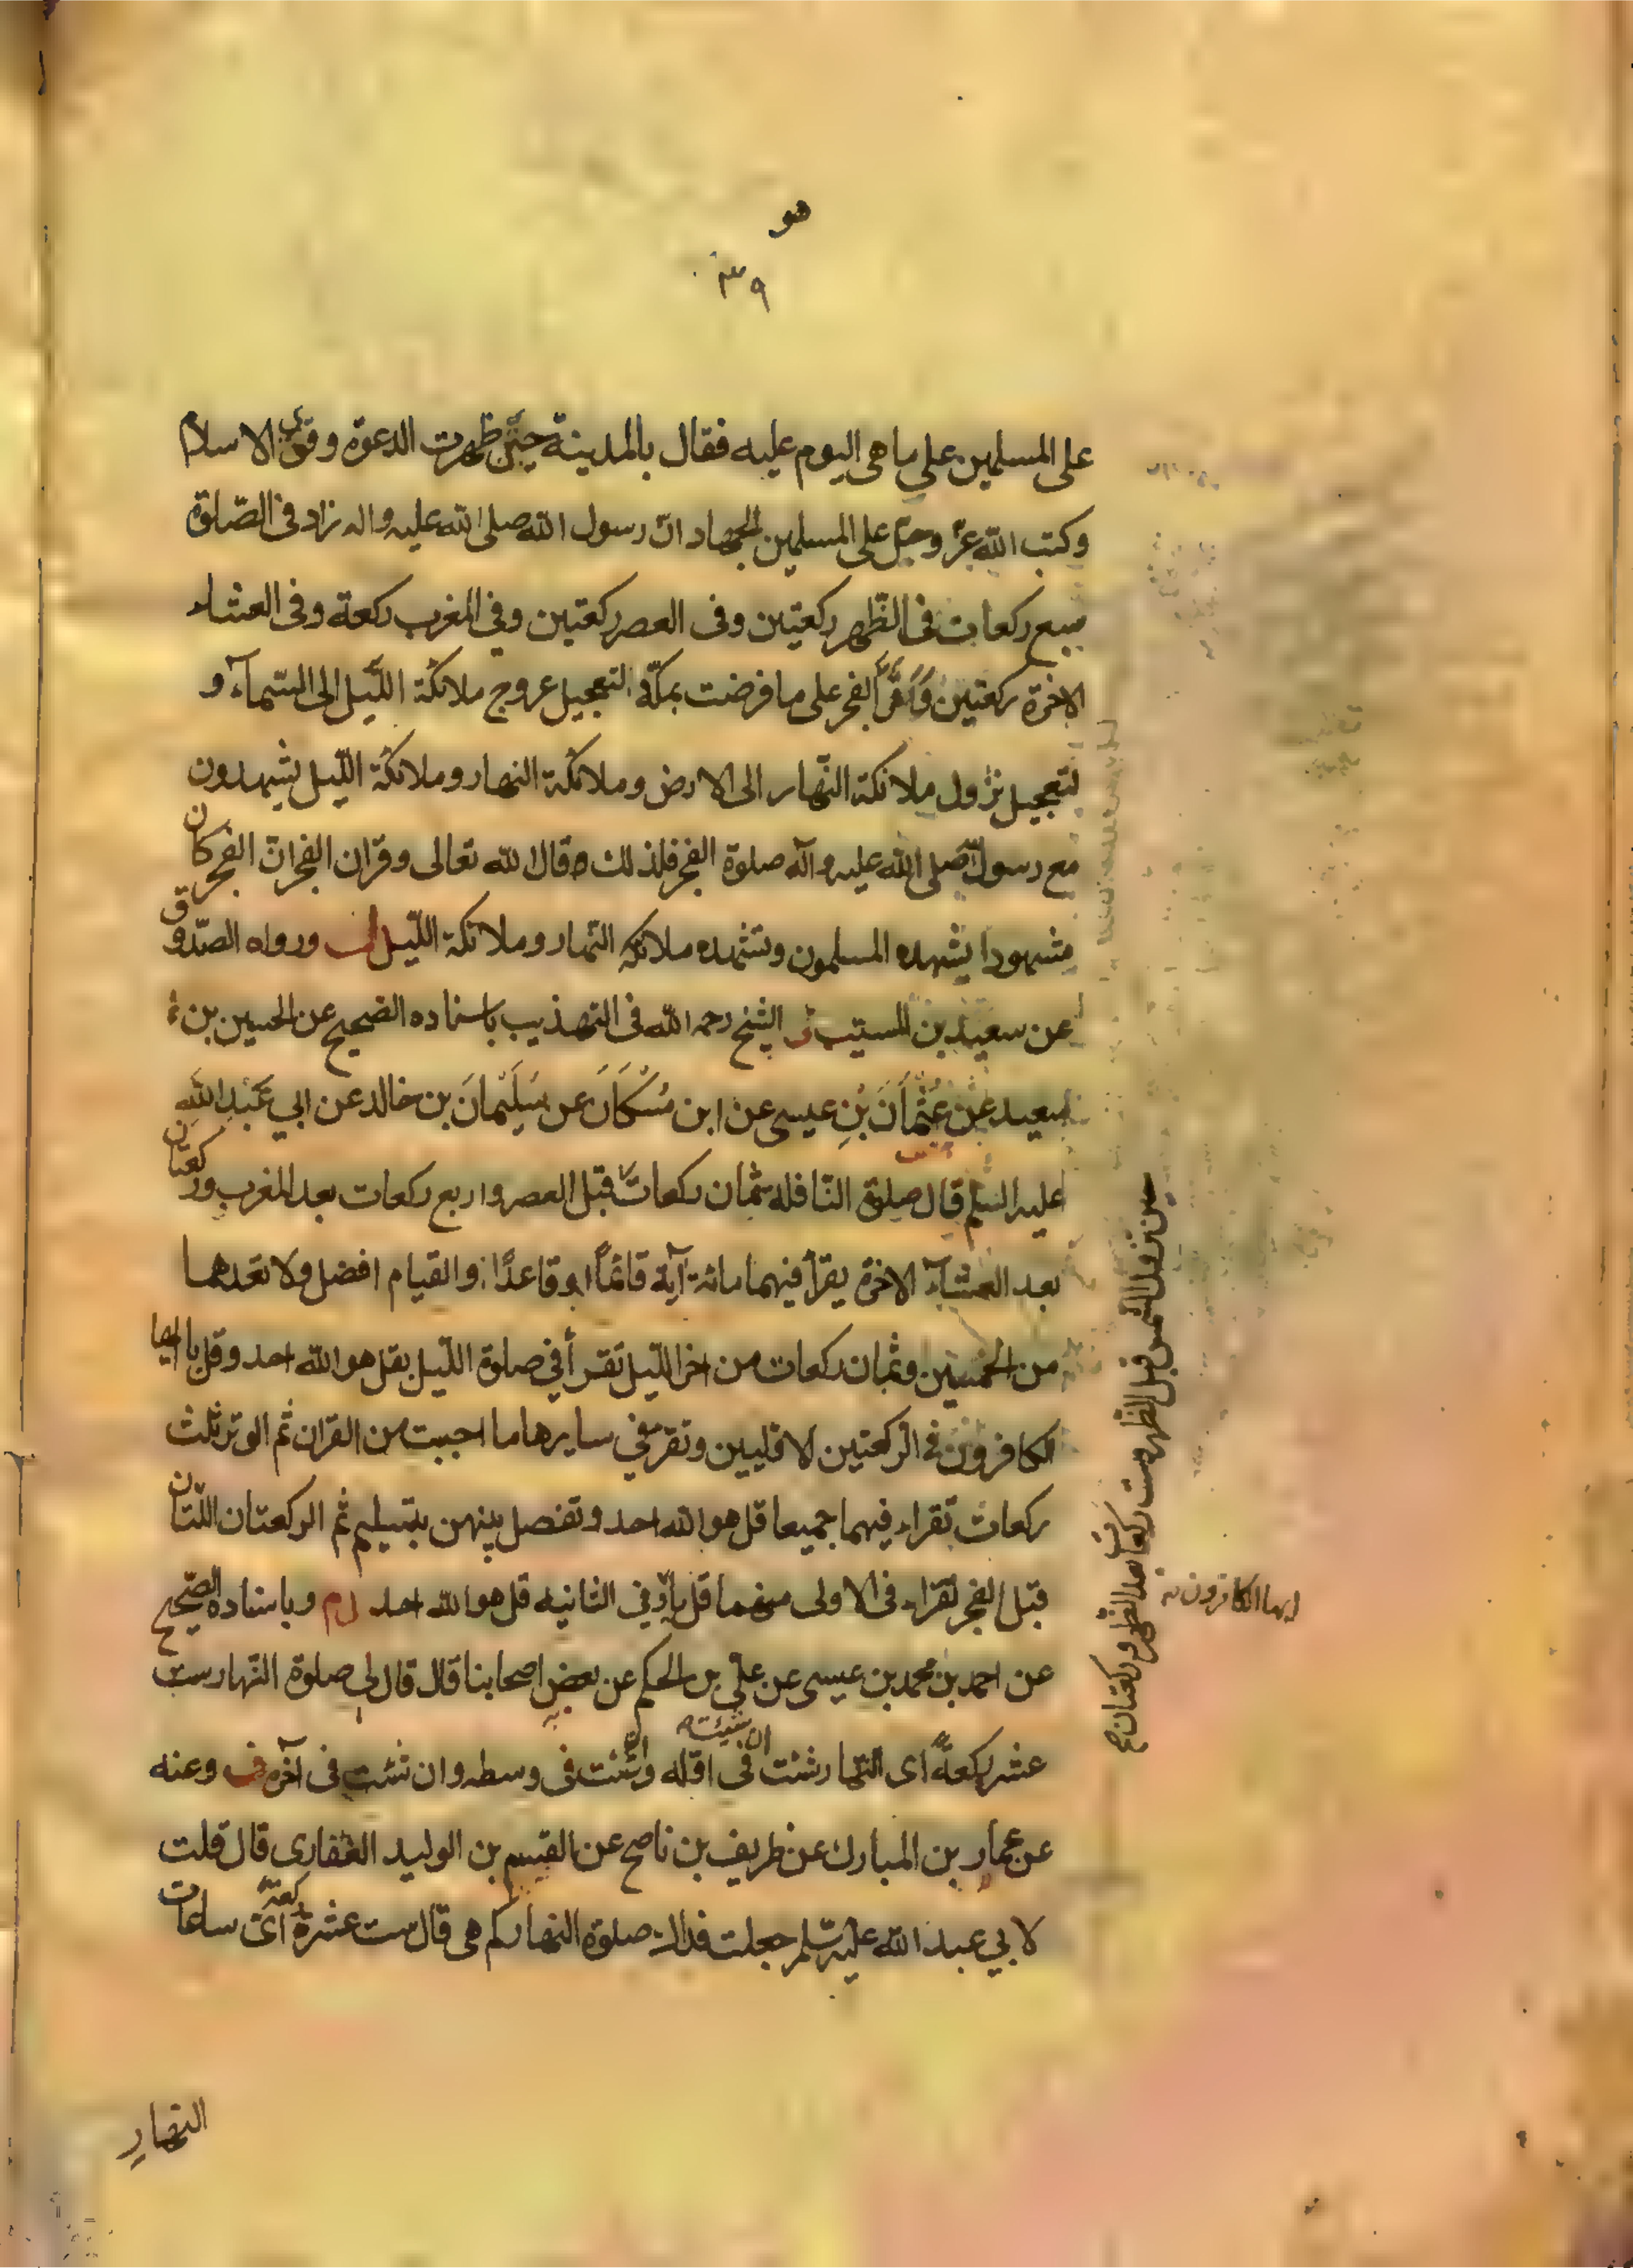 هو
٣٩
على المسلمين على ما هى اليوم عليه فقال بالمدينة حين ظهرت الدعوة وقوى الاسلام
وكتب الله عز وجل على المسلمين الجهاد ان رسول الله صلى الله عليه واله زاد فى الصّلوة
سبع ركعات فى الظّهر ركعتين وفى العصر ركعتين وفي المغرب ركعة وفى العشاء
الاخرة ركعتين وَاَقَرَّ الفجر على ما فرضت بمكّة لتعجيل عروج ملائكة اللّيل الى السّمآء و
لتعجيل نزول ملائكة النّهار الى الارض وملائكة النهار وملائكة اللّيل يشهدون
مع رسول الله صلى الله عليه وآله صلوة الفجر فلذلك قال الله تعالى وقران الفجر انّ الفجر كان
مشهودا يشهده المسلمون وتشهده ملائكة النّهار وملائكة اللّيل ورواه الصّدوق
عن سعيد بن المسيّب الشيخ رحمه الله فى التهذيب باسناده الصّحيح عن الحسين بن
سعيد عن عُثْمانَ بْنِ عيسى عن ابن مُسْكَانَ عن سُلَيْمانَ بن خالد عن ابي عَبْدِ اللهِ
عليه السّلم قال صلوة النّافله ثمان ركعات قبل العصر واربع ركعات بعد المغرب وركعتان
بعد العشآء الاخرة يقرأ فيهما مائة آية قائمًا او قاعدًا والقيام افضل ولا تعدهما
من الخمسين وثمان ركعات من اخر اللّيل تقرأ في صلوة اللّيل بقل هو الله احد وقل يا ايها
الكافرون فى الركعتين الاوليين وتقرء في سايرها ما احببت من القران ثم الوتر ثلث
ركعات تقراء فيهما جميعا قل هو الله احد وتفصل بينهن بتسليم ثم الركعتان اللّتان
قبل الفجر تقراء فى الاولى منهما قل يا وفي الثانيه قل هو الله احد وباسناده الصّحيح
عن احمد بن محمد بن عيسى عن علي بن الحكم عن بعض اصحابنا قال قال لي صلوة النّهار ست
عشر ركعةً اى النّهار شئت ان شئت فى اوّله وان شئت فى وسطه وان شئت فى آخره وعنه
عن عمار بن المبارك عن ظريف بن ناصح عن القسم بن الوليد الغفارى قال قلت
لابي عبد الله عليه السّلم جعلت فداك صلوة النهار كم هى قال ست عشرة ركعة اىّ ساعات
النهار
حين تزول الشمس قبل الظهر وست ركعات بعد الظهر وركعتان صح
ايها الكافرون